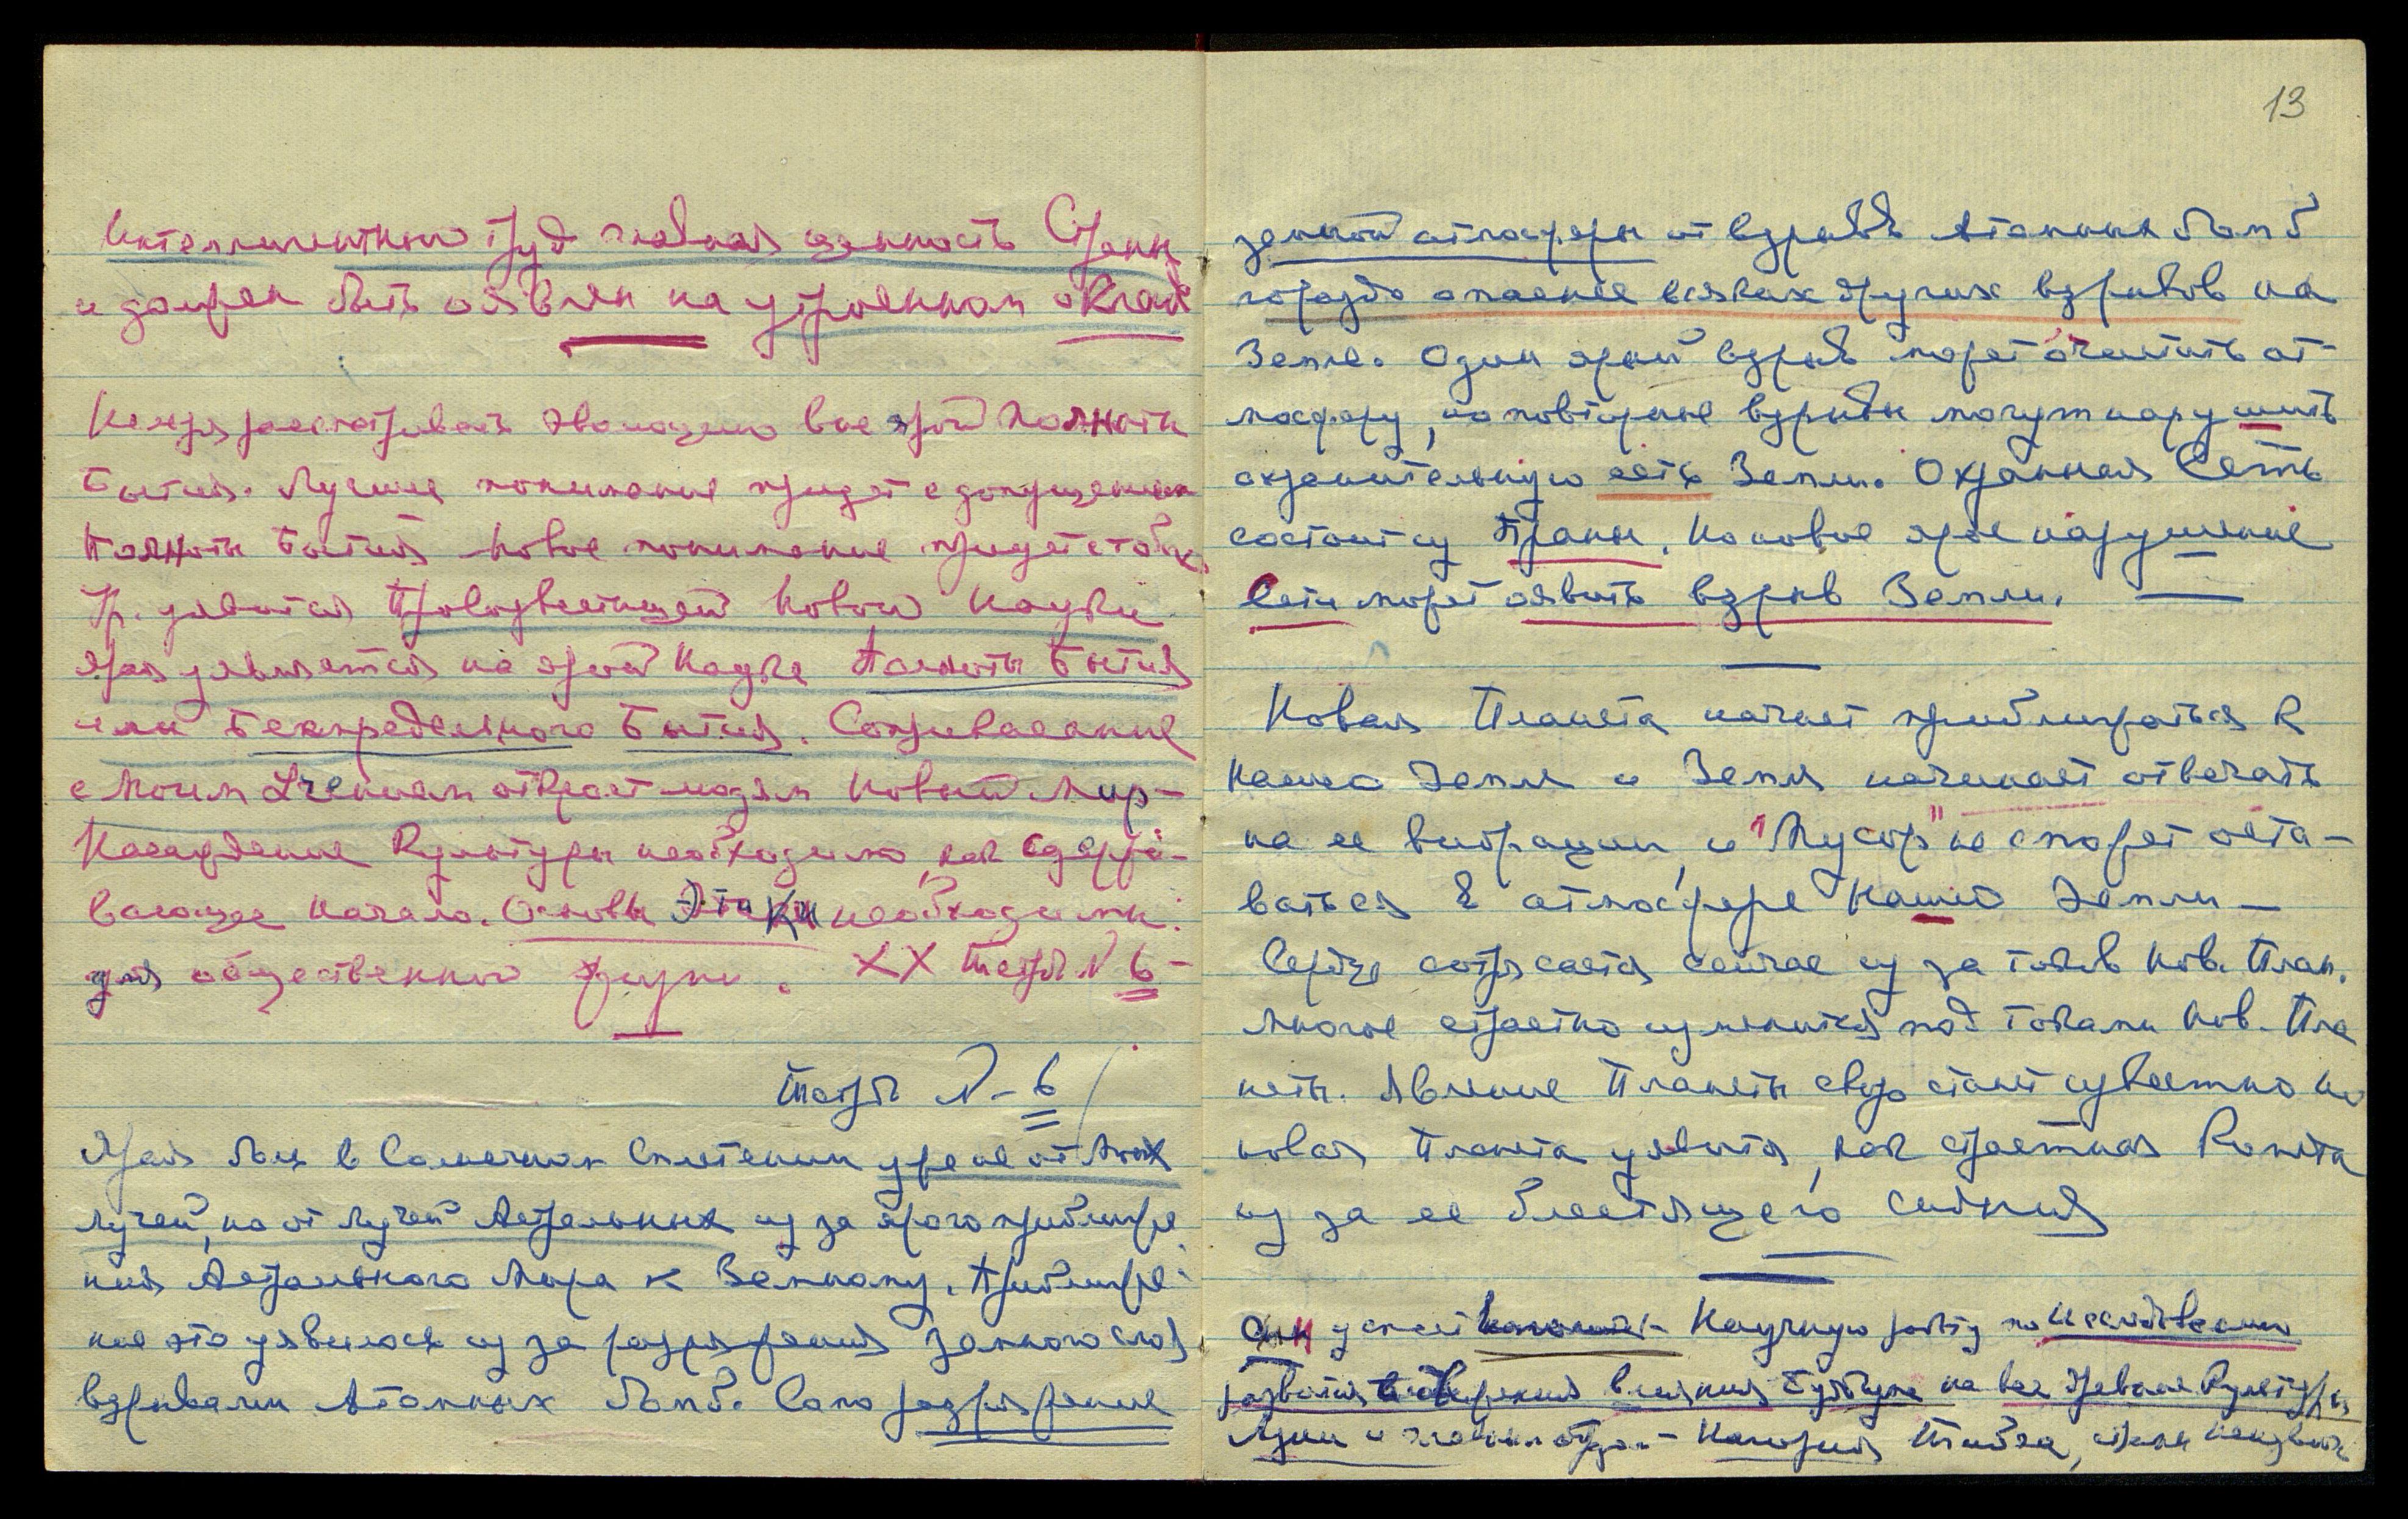 Интеллигентный труд главная ценность Страны
и должен быть оявлен на утроенном оклад
Нельзя рассматривать эволюцию вне ярой Полноты
Бытия. Лучшее понимание придет с допущением
Полноты Бытия Новое понимание придет с тобою
Ур. уявится Провозвестницей Новой Науки
Ярая уявляется на ярой Науке Полноты Бытия
или Беспредельного Бытия. Соприкасание
с Моим Учением откроет людям Новый Мир–
Насаждение Культуры необходимо, как сдержи-
вающее начало. Основы Этики необходимы
для общественной жизни. XX Тетрадь N 6–
Тетрадь N–6
Ярая боль в Солнечном Сплетении уже не от Моих
лучей, но от лучей Астральных из за ярого приближе
ния Астрального Мира к Земному. Приближе-
ние это уявилось из за разряжения земного слоя
взрывами Атомных бомб. Само разряжение
13
земной атмосферы от взрывов Атомных бомб
гораздо опаснее всяких других взрывов на
Земле. Один ярый взрыв может очистить ат-
мосферу, но повторные взрывы могут нарушить
охранительную сеть Земли. Охранная Сеть
состоит из Праны. Но новое ярое нарушение
Сети может оявить взрыв Земли.
Новая Планета начнет приближаться к
нашей Земле и Земля начинает отвечать
на ее вибрации, и "Мусор" не сможет оста-
ваться в атмосфере нашей Земли –
Сердце сотрясается сейчас из за токов Нов. План.
Многое страстно изменится под токами Нов. Пла
неты. Явление Планеты скоро станет известно но
новая Планета уявится, как страстная Комета
из за ее блестящего сияния
Научную работу по исследованию
влияния на все древние Культуры
Азии и Нагорья Тибета,